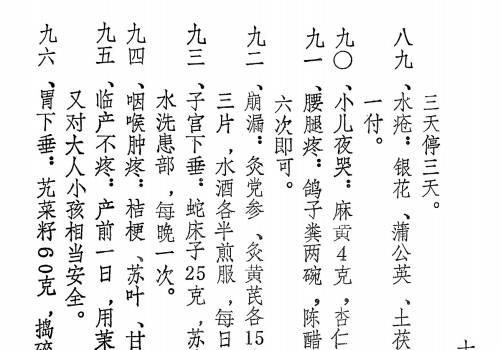 三天停三天。
八九、水疮：银花、蒲公英、土茯
一付。
九〇、小儿夜哭：麻黄4克，杏仁
九一、腰腿疼：鸽子粪两碗，陈醋
六次即可。
九二、崩漏：灸党参、灸黄芪各15
三片，水酒各半煎服，每日
九三、子宫下垂：蛇床子25克，苏
水洗患部，每晚一次。
九四、咽喉肿疼：桔梗、苏叶、甘
九五、临产不疼：产前一日，用茉
又对大人小孩相当安全。
九六、胃下垂：艽菜籽90克，捣碎